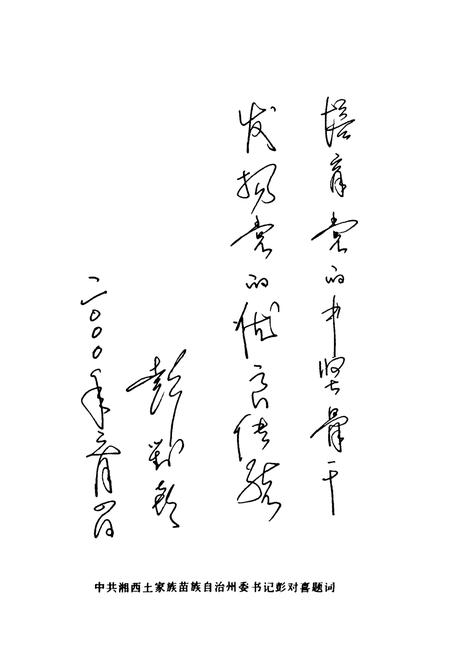 培育党的中坚骨干
发扬党的优良传统
彭对喜
二〇〇〇年六月四日
中共湘西土家族苗族自治州委书记彭对喜题词